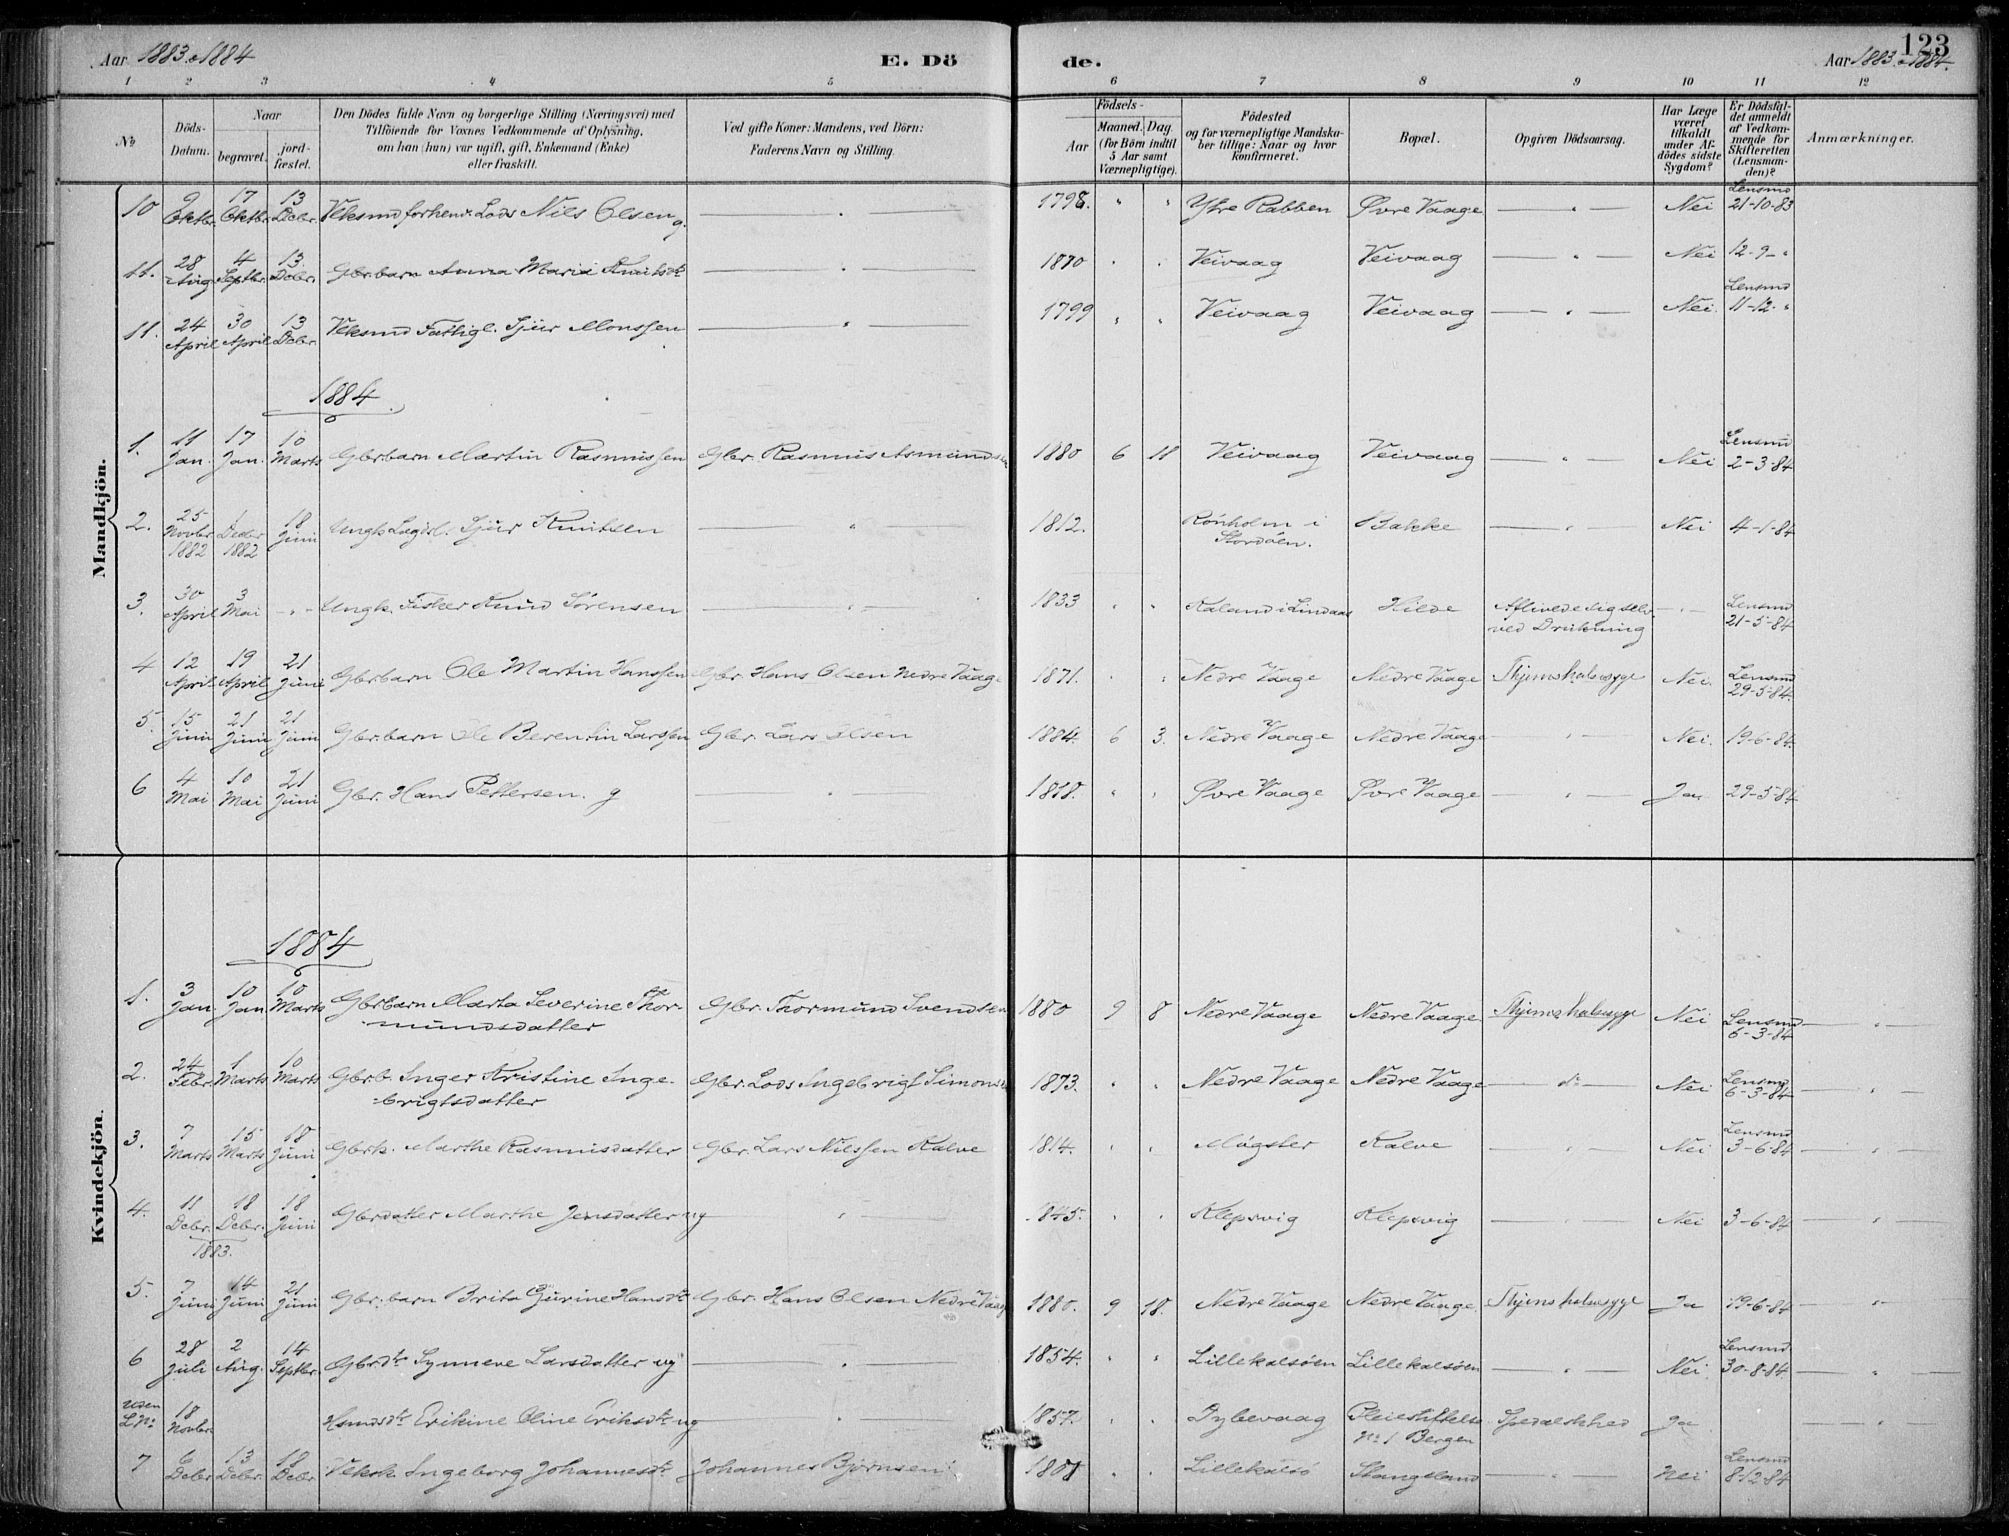 Aar 1883 o 1884
E. Döde.
Aar 1883 o 1884.
123
1 2 3 4 5 6 7 8 9 10 11 12
No
Döds-Datum.
Naar
begravet.
jord-fæstet.
Den Dödes fulde Navn og borgerlige Stilling (Næringsvei) med
Tilföiende for Voxnes Vedkommende af Oplysning,
om han (hun) var ugift, gift, Enkemand (Enke)
eller fraskilt.
Ved gifte Koner: Mandens, ved Börn:
Faderens Navn og Stilling.
Födsels-
Aar
Maaned. Dag.
(for Börn indtil
5 Aar samt
Værnepligtige).
Födested
og for værnepligtige Mandska-
ber tillige: Naar og hvor
konfirmeret.
Bopæl.
Opgiven Dödsaarsag.
Har Læge
været
tilkaldt
under Af-
dödes sidste
Sygdom?
Er Dödsfal-
det anmeldt
af Vedkom-
mende for
Skifteretten
(Lensman-
den)?
Anmærkninger.
Mandkjön.
10 9 Oktbr. 17 Oktbr. 13 Debr. Veksmd forhenv. Lods Nils Olsen g. — " — 1798. " " Ytre Rabben Øvre Vaage — " — Nei Lensmd 21-10-83
11. 28 Aug. 4 Septbr. 13. Debr. Gbr.barn Anna Maria Knutsdtr — " — 1870 " " Veivaag Veivaag — " — Nei 12-9- "
11. 24 April 30 April 13 Debr. Veksmd Fattigl. Sjur Monssen — " — 1799 " " Veivaag Veivaag — " — Nei. Lensmd 11-12- "
1884
1. 11 Jan. 17 Jan. 10 Marts Gbrbarn Martin Rasmussen Gbr. Rasmus Asmunds 1880 6 18 Veivaag Veivaag — " — Nei Lensmd 2-3-84
2. 25 Novbr 1882 1 Decbr 1882 18 Juni Ungk. Lægdsl. Sjur Knutsen — " — 1812. Rönholm i Stordöen. Bakke — " — Nei 4-1-84
3. 30 April 3 Mai - " - Ungk. Fisker Knud Sörensen — " — 1833 " " Kaland i Lindaas Hilde Aflivede sig selv ved Drukning - " - Lensmd 21-5-84
4 12 April 19 April 21 Juni Gbrbarn Ole Martin Hanssen Gbr. Hans Olsen Nedre Vaage 1871. " " Nedre Vaage Nedre Vaage Thjims halssyge Nei. Lensmd 29-5-84.
5. 15 Juni 21 Juni 21 Juni Gbr.barn Ole Berentin Larssen Gbr. Lars Olsen 1884. 6 3. Nedre Vaage Nedre Vaage — " — Nei. 19-6-84.
6 4 Mai 10 Mai 21 Juni Gbr. Hans Pettersen. g — " — 1818. " " Øvre Vaage Øvre Vaage — " — Ja. 29-5-84
Kvindekjön.
1884
1. 3 Jan. 10 Jan 10 Marts Gbrbarn Marta Severine Thor-
mundsdatter Gbr. Thormund Svendsen 1880 9 8 Nedre Vaage Nedre Vaage. Thjims halssyge Nei Lensmd 6-3-84 — " —
2. 24 Febr. 1 Marts 10 Marts Gbrb. Inger Kristine Inge-
brigtsdatter Gbr. Lods Ingebrigt Simons 1873. " " Nedre Vaage Nedre Vaage — do — Nei Lensmd 6-3-84 — " —
3. 7 Marts 15 Marts 18 Juni Gbrk. Marthe Rasmusdatter Gbr. Lars Nilssen Kalve 1814. " " Mögster Kalve — " — Nei Lensmd 3-6-84 — " —
4. 11 Debr. 18 Debr. 1883. 18 Juni Gbrdatter Marthe Jensdatter ug — " — 1845. " " Klepsvig Klepsvig — " — Nei 3-6-84 — " —
5. 7 Juni 14 Juni 21 Juni Gbr.barn Brita Gurine Hansdtr Gbr. Hans Olsen Nedre Vaage 1880. 9 18. Nedre Vaage Nedre Vaage. Thjims halssyge Ja 19-6-84 — " —
6 28 Juli 2 Aug. 14 Septbr. Gbrdtr Synneve Larsdatter ug — " — 1854. " " Lillekalsöen Lillekalsöen — " — Nei Lensmd 30-8-84. — " —
uden L.No 18 Novbr. Hsmdsdtr Erikine Oline Eriksdtr ug — " — 1857. " " Dybevaag Pleiestiftelse No 1 Bergen Spedalskhed Ja — " —
7 6 Debr 13 Debr. 18 Debr. Veksk. Ingeborg Johannesdtr Johannes Björnsen 1801 " " Lillekalsö Stangeland — " — Nei Lensmd 8-12-84